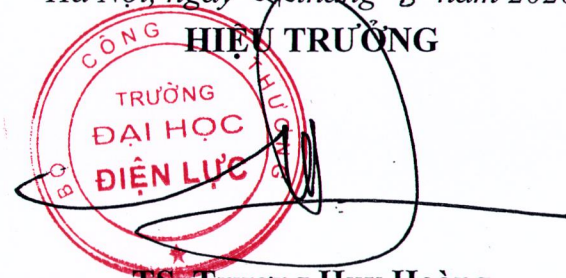 Hà Nội, ngày tháng 8 năm 2020
HIỆU TRƯỞNG
BỘ CÔNG THƯƠNG
TRƯỜNG
ĐẠI HỌC
ĐIỆN LỰC
TS. Trương Huy Hoàng